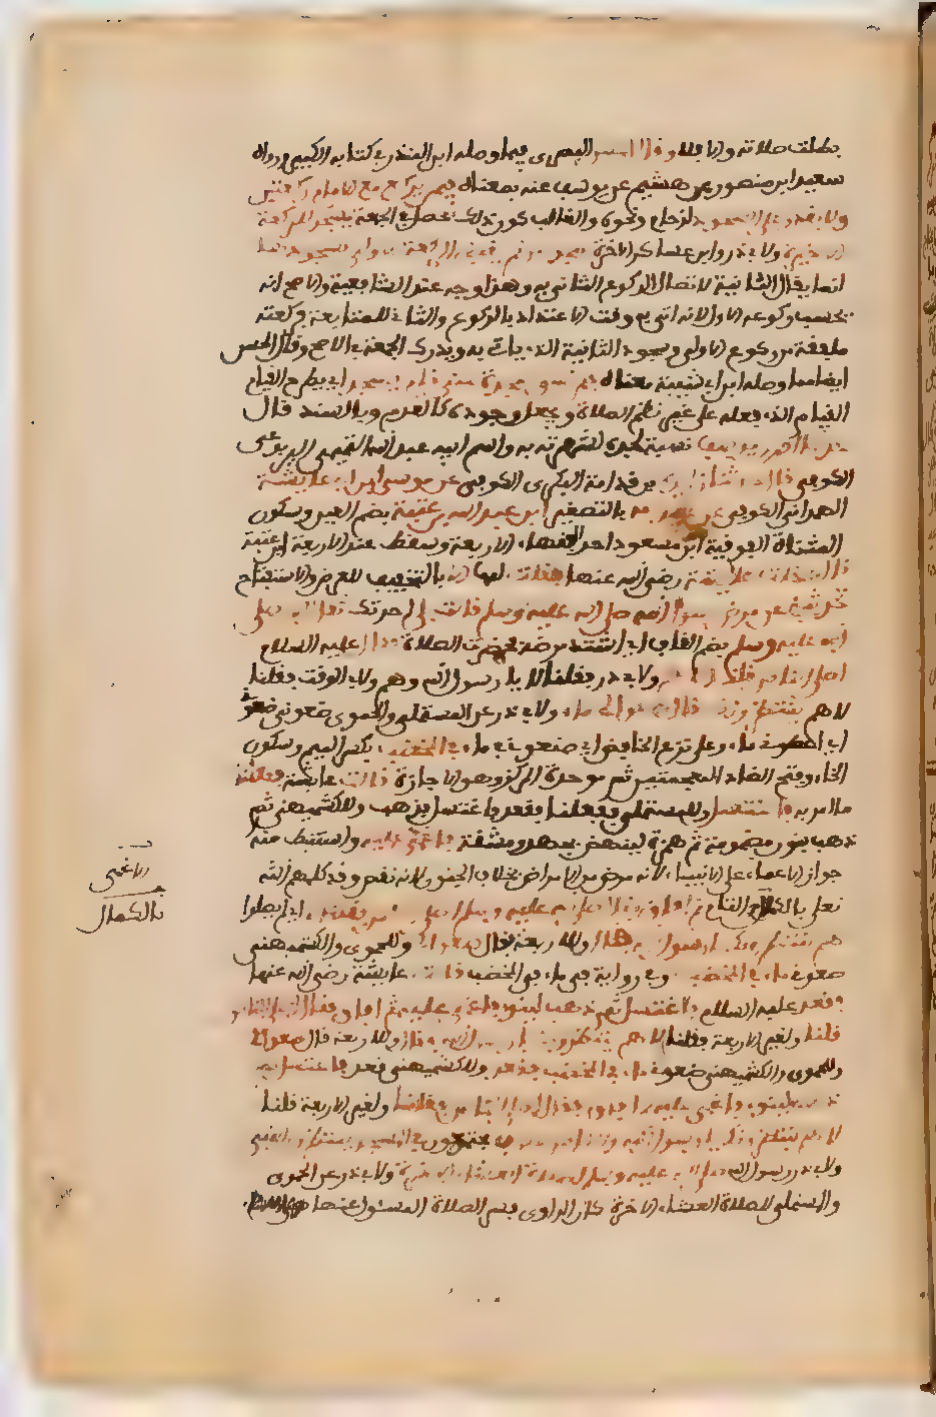 بطلت صلاته والا فلا وقال الحسن البصري فيما وصله ابن المنذر في كتابه الكبير ورواه
سعيد ابن منصور عن هشيم عن يونس عنه بمعناه فيمن يركع مع الامام ركعتين
ولا يقدر على السجود لزحام ونحوه والغالب كون ذلك يحصل في الجمعة يسجد للركعة
الاخيرة ولابي ذر وابن عساكر الاخرة سجدتين ثم يقضي الركعة الاولى بسجودها
انما يقال الثانية لاتصال الركوع الثاني به وهذا وجه عند الشافعية والاصح انه
يحسب ركوعه الاول لانه اتى به وقت الاعتداد بالركوع والثاني للمتابعة فركعته
ملفقة من ركوع الاولى وسجود الثانية الذي ياتي به ويدرك الجمعة في الاصح وقال الحسن
ايضا مما وصله ابن ابي شيبة بمعناه فيمن نسي سجدة حتى قام يسجد اي يطرح القيام
القيام الذي فعله على غير نظم الصلاة ويجعل وجوده كالعدم وبالسند قال
حدثنا احمد بن يونس نسبة لجده لشهرته به واسم ابيه عبد الله التميمي اليربوعي
الكوفي قال حدثنا زائدة بن قدامة البكري الكوفي عن موسى بن ابي عائشة
الهمداني الكوفي عن عبيد الله بالتصغير ابن عبد الله بن عتبة بضم العين وسكون
المثناة الفوقية ابن مسعود احد الفقهاء الاربعة وسقط عند الاربعة ابن عتبة
قال دخلت على عائشة رضي الله عنها فقلت لها الا بالتخفيف للعرض والاستفتاح
تحدثيني عن مرض رسول الله صلى الله عليه وسلم قالت بلى احدثك ثقل النبي صلى
الله عليه وسلم بضم القاف اي اشتد مرضه فحضرت الصلاة فقال عليه السلام
اصلى الناس قلنا لا ولابي ذر فقلنا لا يا رسول الله وهم ولابي الوقت فقلنا
لا هم ينتظرونك قال ضعوا لي ماء ولابي ذر عن المستملي والحموي ضعوني
اي ماء وعلى نزع الخافض اي ضعوني في ماء في المخضب بكسر الميم وسكون
الخاء وفتح الضاد المعجمتين ثم موحدة المركن وهو الاجانة قالت عائشة ففعلنا
ما امر به فاغتسل وللمستملي ففعلنا فقعد فاغتسل فذهب وللكشميهني ثم
ذهب لينوء بنون مضمومة ثم همزة لينهض بجهد ومشقة فاغمي عليه واستنبط منه
جواز الاغماء على الانبياء لانه مرض من الامراض بخلاف الجنون لانه نقص وقد كملهم الله
تعالى بالكمال التام ثم افاق فقال صلى الله عليه وسلم اصلى الناس قلنا لا اي لم يصلوا
هم ينتظرونك يا رسول الله فقال وللاربعة قال ضعوا لي وللحموي والكشميهني
ضعوني ماء في المخضب وفي رواية في ماء في المخضب قالت عائشة رضي الله عنها
فقعد عليه السلام فاغتسل ثم ذهب لينوء فاغمي عليه ثم افاق فقال اصلى الناس
قلنا ولغير الاربعة فقلنا لا هم ينتظرونك يا رسول الله فقال وللاربعة قال ضعوا لي
وللحموي والكشميهني ضعوني ماء في المخضب فقعد وللكشميهني قعد فاغتسل
ثم ذهب لينوء فاغمي عليه ثم افاق فقال اصلى الناس فقلنا ولغير الاربعة قلنا
لا هم ينتظرونك يا رسول الله والناس عكوف مجتمعون في المسجد ينتظرون النبي
ولابي ذر رسول الله صلى الله عليه وسلم لصلاة العشاء الاخرة ولابي ذر عن الحموي
والمستملي الصلاة العشاء الاخرة كان الراوي فسر الصلاة المسئول عنها
الاغمى
بالكمال